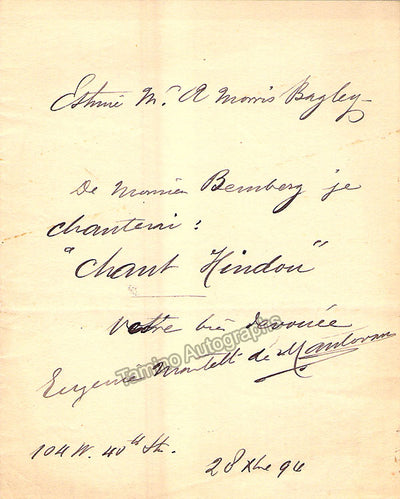 Estimé Mr. A Morris Bagley
De Monsieu Bemberg je
chanterai :
"Chant Hindou"
Votre bien devouée
Eugenie Mantelli de Mantovani
Tamino Autographs
104 W. 40th St.
28 Xbre 94